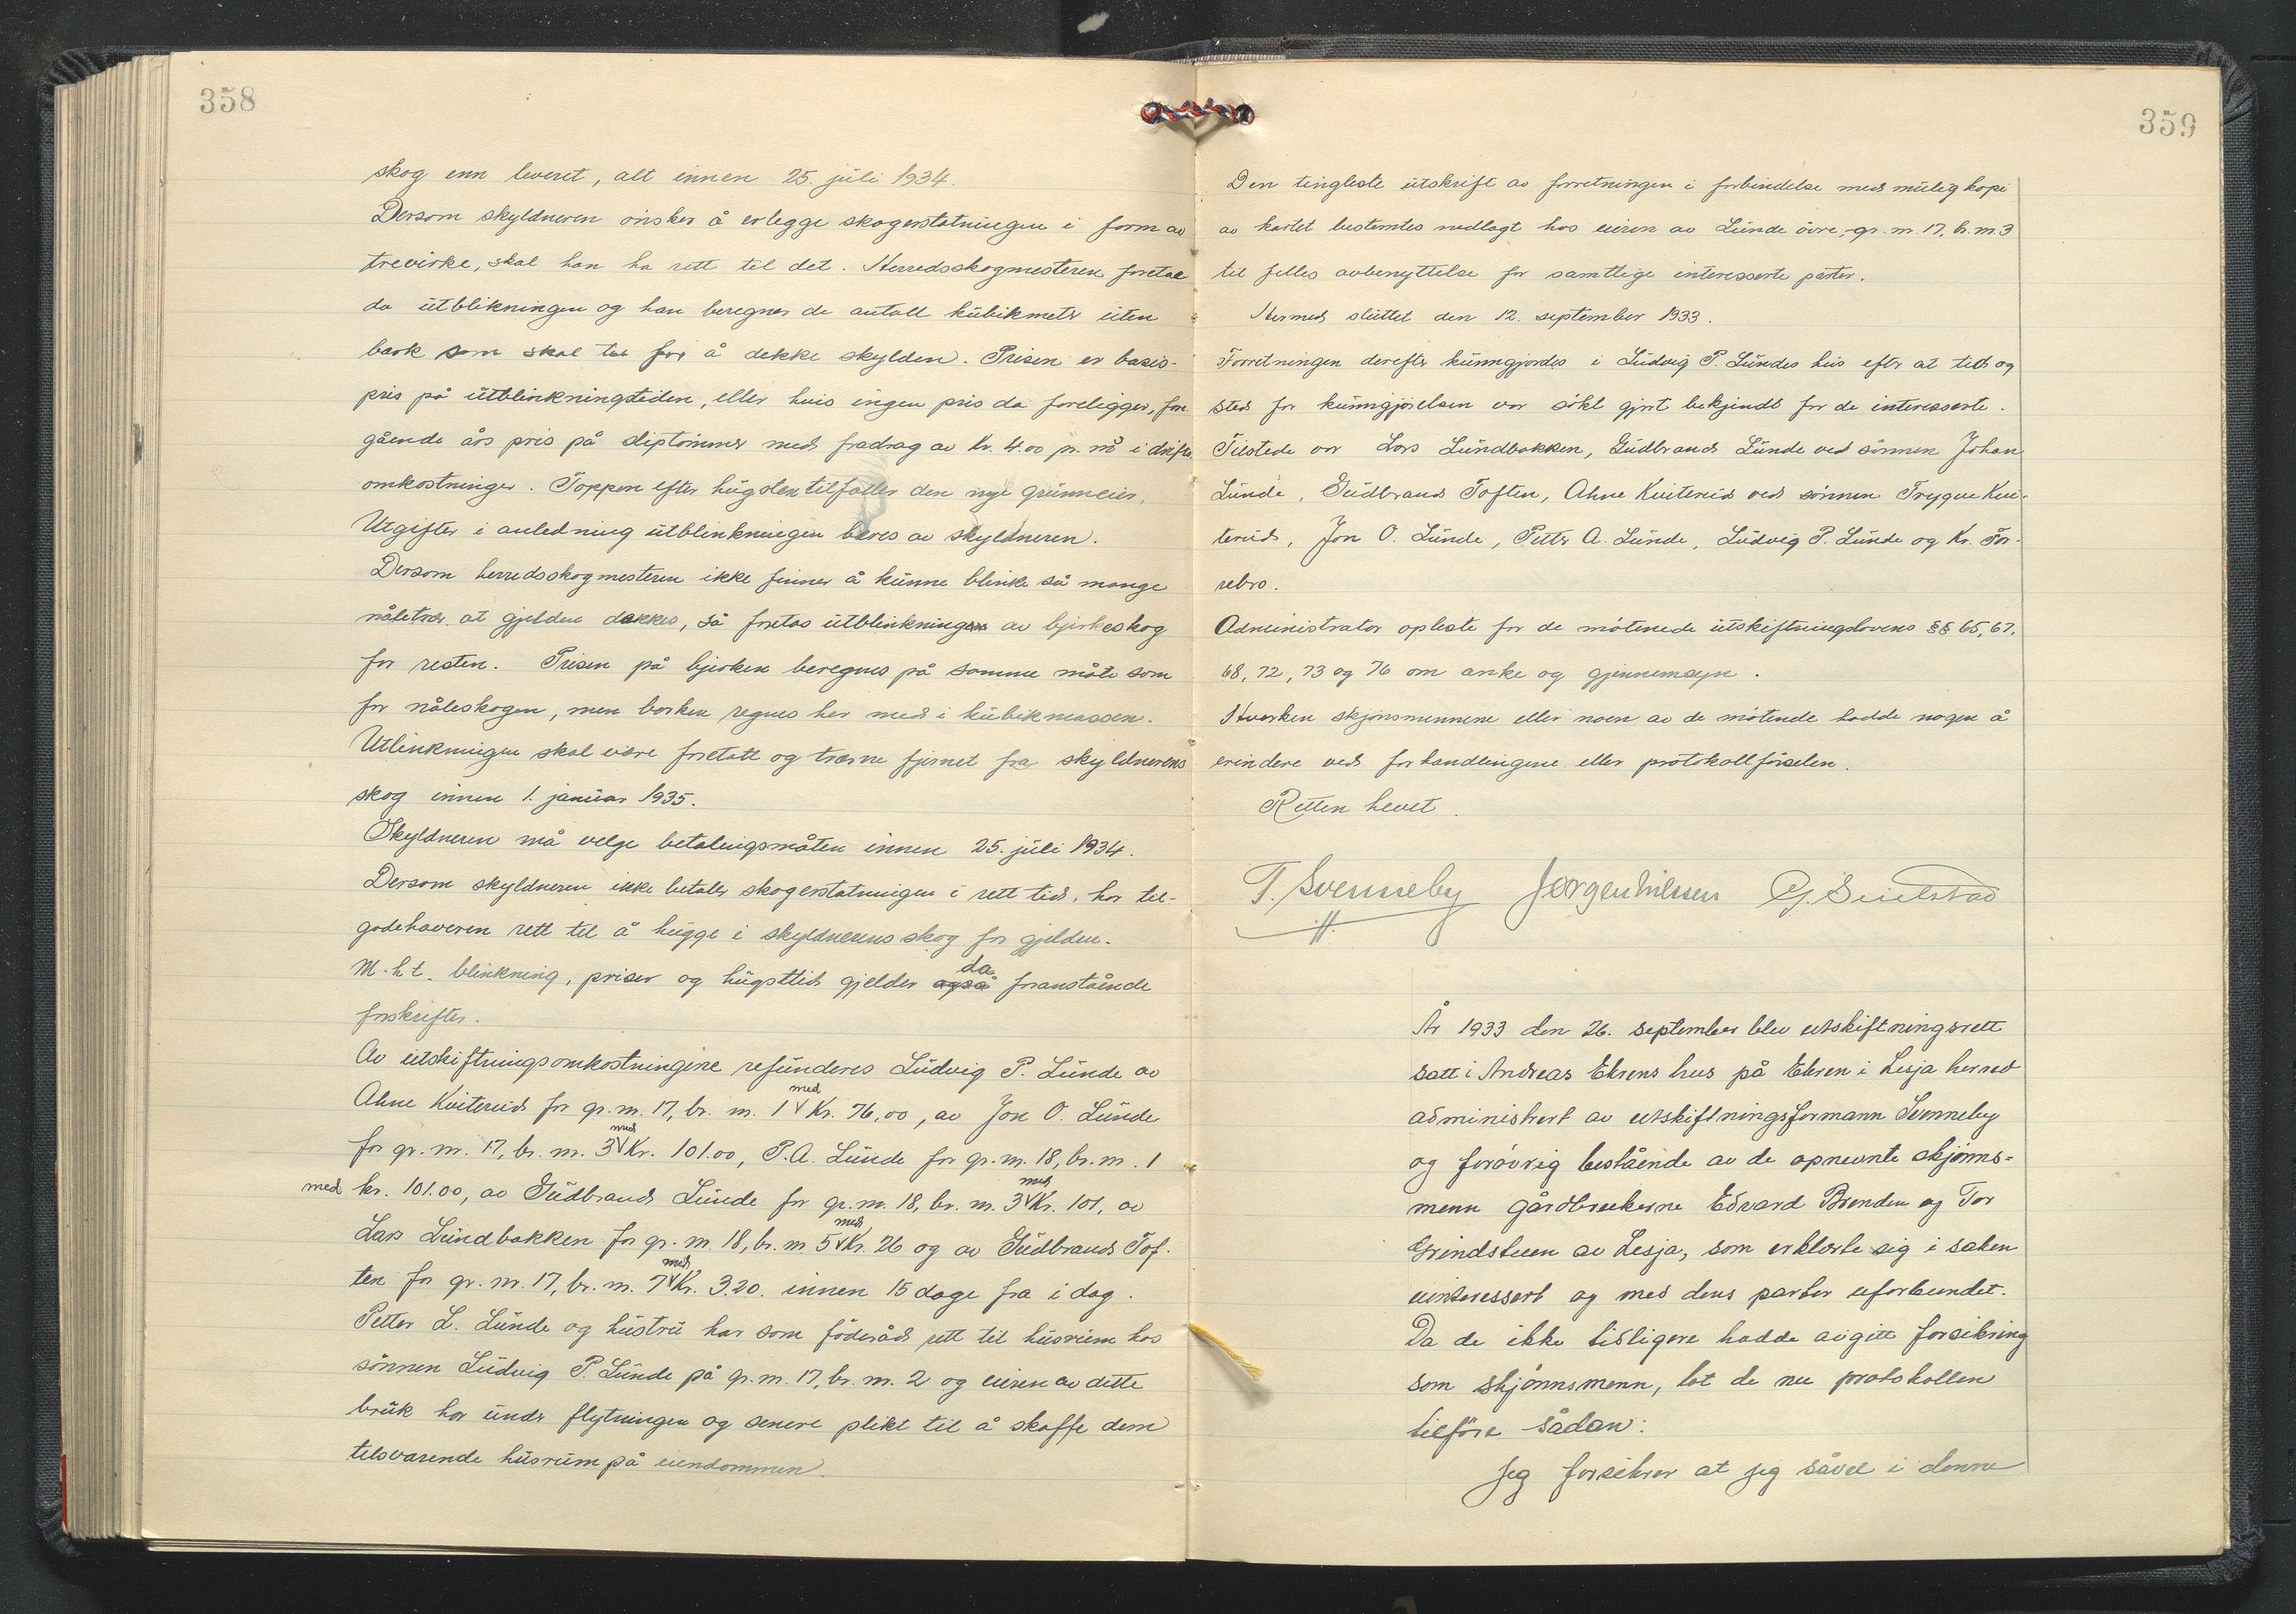 358
skog enn leveret, alt innen 25. juli 1934.
Dersom skyldneren ønsker å erlegge skogerstatningen i form av
trevirke, skal han ha rett til det. Herredsskogmesteren foretar
da utblikningen og han beregner de antall kubikmetr uten
bark som skal til for å dekke skylden. Prisen er basis-
pris på utblinkningstiden, eller hvis ingen pris da foreligger, fore-
gående års pris på sliptømmer med fradrag av kr. 4.00 pr. m³ i drifts-
omkostninger. Toppen efter hugsten tilfaller den nye grunneier.
Utgifter i anledning utblinkningen bæres av skyldneren.
Dersom herredsskogmesteren ikke finner å kunne blinke så mange
nåletrær at gjelden dekkes, så foretas utblinkningen av bjerkeskog
for resten. Prisen på bjerken beregnes på samme måte som
for nåleskogen, men barken regnes her med i kubikmassen.
Utlinkningen skal være foretatt og trærne fjernet fra skyldnerens
skog innen 1. januar 1935.
Skyldneren må velge betalingsmåten innen 25. juli 1934.
Dersom skyldneren ikke betaler skogerstatningen i rett tid, har til-
godehaveren rett til å hugge i skyldnerens skog for gjelden.
M.h.t. blinkning, priser og hugsttid gjelder også da foranstående
forskrifter.
Av utskiftningsomkostningene refunderes Ludvig P. Lunde av
Ahne Kviterud for gr. nr. 17, br. nr. 1 med Kr. 76,00, av Jon O. Lunde
for gr. nr. 17, br. nr. 3 med Kr. 101.00, P.A. Lunde for gr. nr. 18, br. nr. 1
med kr. 101.00, av Gudbrand Lunde for gr. nr. 18, br. nr. 3 med Kr. 101, av
Lars Lundbakken for gr. nr. 18, br. nr. 5 med Kr. 26 og av Gudbrand Tof-
ten for gr. nr. 17, br. nr. 7 med Kr. 3.20. innen 15 dage fra i dag.
Petter L. Lunde og hustru har som føderåd rett til husrum hos
sønnen Ludvig P. Lunde på gr. nr. 17, br. nr. 2 og eieren av dette
bruk har under flytningen og senere plikt til å skaffe dem
tilsvarende husrum på eiendommen.
359
Den tingleste utskrift av forretningen i forbindelse med mulig kopi
av kartet bestemtes nedlagt hos eieren av Lunde øvre, gr. nr. 17, br. nr. 3
til felles avbenyttelse for samtlige interesserte parter.
Hermed sluttet den 12. september 1933.
Forretningen derefter kunngjordes i Ludvig P. Lundes hus efter at tid og
sted for kunngjørelsen var søkt gjort bekjendt for de interesserte.
Tilstede var Lars Lundbakken, Gudbrand Lunde ved sønnen Johan
Lunde, Gudbrand Toften, Ahne Kviterud ved sønnen Trygve Kvi-
terud, Jon O. Lunde, Petter A. Lunde, Ludvig P. Lunde og Kr. Tor-
rebro.
Administrator opleste for de møtende utskiftningslovens §§ 65, 67,
68, 72, 73 og 76 om anke og gjennemsyn.
Hverken skjønsmennene eller noen av de møtende hadde nogen å
erindere ved forhandlingene eller protokollførselen.
Retten hevet.
T. Svenneby Jørgen Nilssen G. Seielstad
År 1933 den 26. september blev utskiftningsrett
satt i Andreas Ekrens hus på Ekren i Lesja herred
administrert av utskiftningsformann Svenneby
og forøvrig bestående av de opnevnte skjønns-
menn gårdbrukerne Edvard Brenden og Tor
Grindstuen av Lesja, som erklærte sig i saken
uinteressert og med dens parter uforbundet.
Da de ikke tidligere hadde avgitt forsikring
som skjønnsmenn, lot de nu protokollen
tilføre sådan:
Jeg forsikrer at jeg såvel i denne